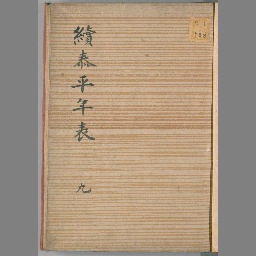 續泰平年表
九